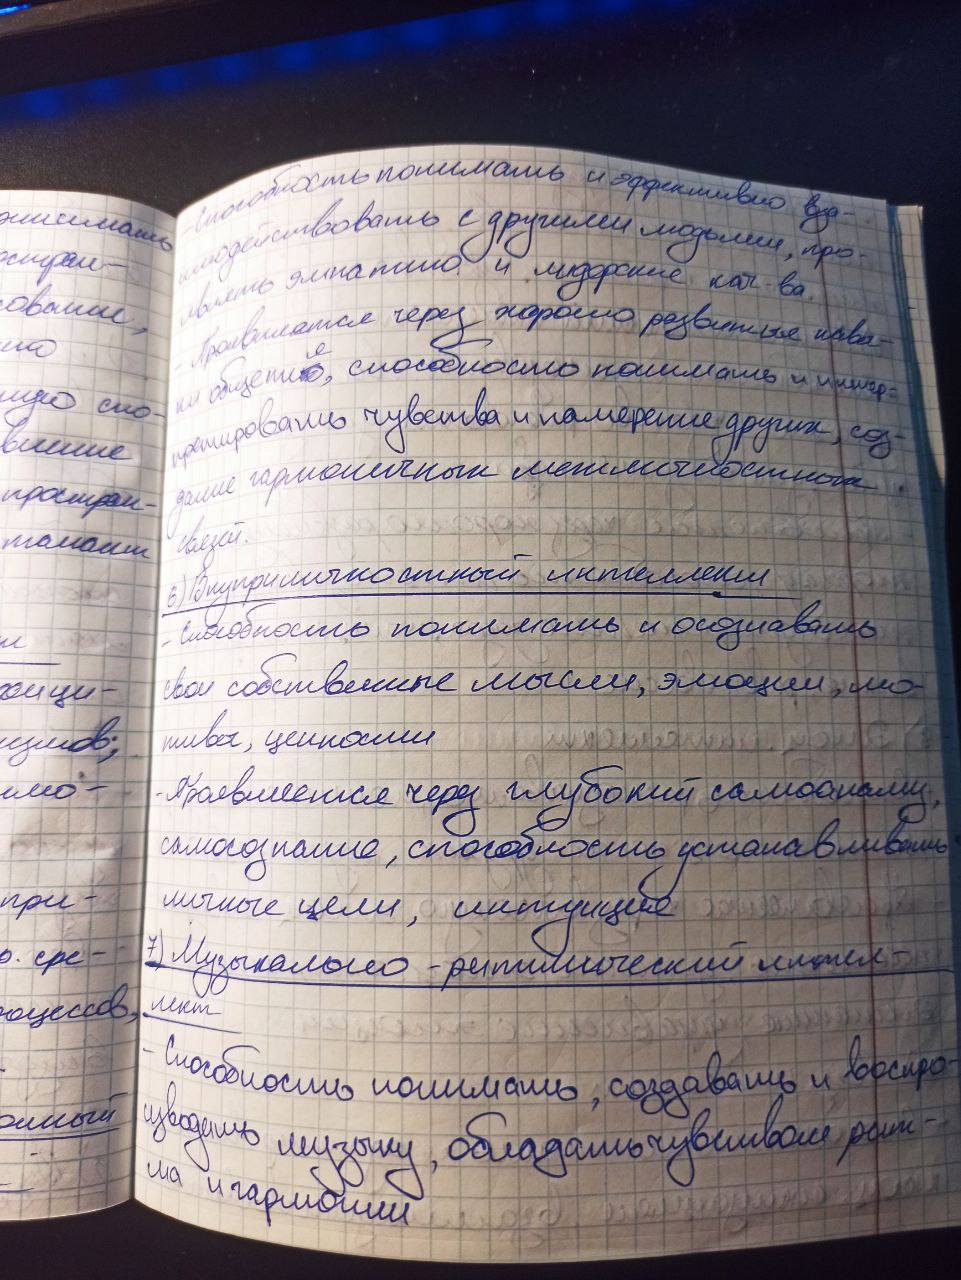 нимать
остран-
сование,
но
ную спо-
вление
простран-
танами
т
конци-
измов;
имо-
при-
о. сре-
роцессов,
онный
- Способность понимать и эффективно вза-
имодействовать с другими людьми, про-
являть эмпатию и лидерские кач-ва.
- Проявляется через хорошо развитые навы-
ки общение, способность понимать и интер-
претировать чувства и намерение других, соз-
дание гармоничных межличностных
связей.
6) Внутриличностный интеллект
- Способность понимать и осознавать
свои собственные мысли, эмоции, мо-
тивы, ценности
- Проявляется через глубокий самоанализ,
самосознание, способность устанавливать
личные цели, интуицие
7) Музыкально - ритмический интел-
лект
- Способность понимать, создавать и воспро-
изводить музыку, обладать чувством рит-
ма и гармонии